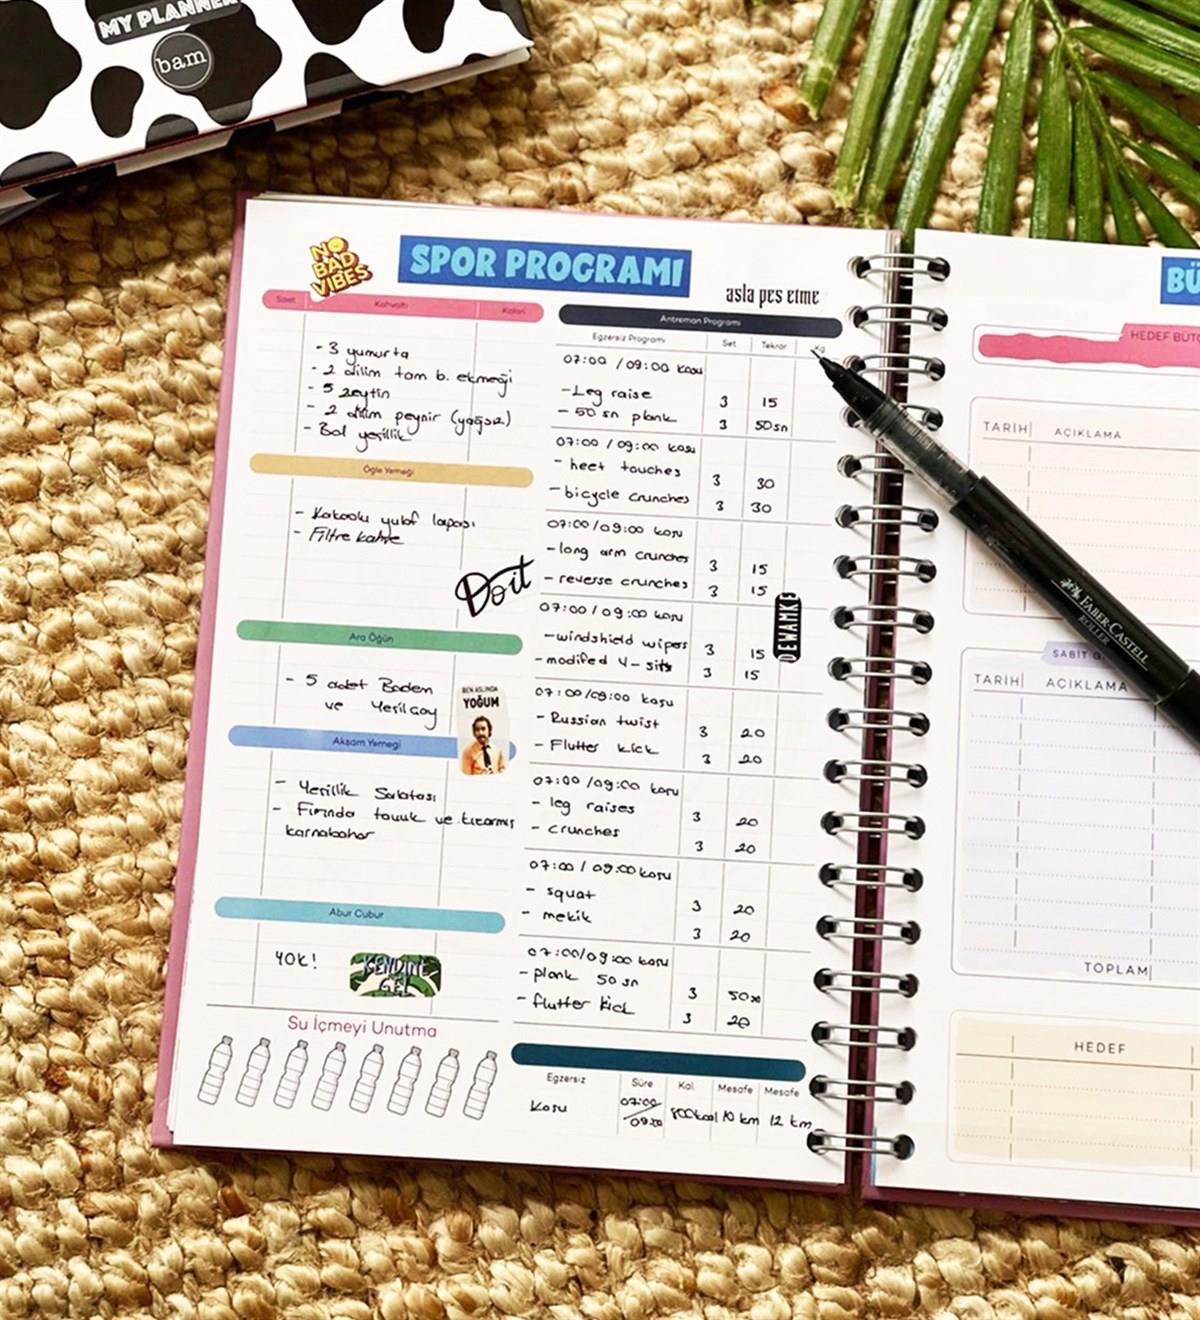 MY PLANNER
bam
NO
BAD
VIBES
SPOR PROGRAMI
asla pes etme
Saat Kahvaltı Kalori
- 3 yumurta
- 2 dilim tam b. ekmeği
- 5 zeytin
- 2 dilim peynir (yağsız)
- Bol yeşillik
Öğle Yemeği
- Kakaolu yulaf lapası
- Filtre kahve
Do it
Ara Öğün
- 5 adet Badem
ve Yeşilçay
BEN ASLINDA
YOĞUM
Akşam Yemeği
- Yeşillik Salatası
- Fırında tavuk ve kızarmış
karnabahar
Abur Cubur
YOK!
KENDİNE
GEL
Su İçmeyi Unutma
Antreman Programı
Egzersiz Programı Set Tekrar Kg
07:00 / 09:00 koşu
- Leg raise 3 15
- 50 sn plank 3 50sn
07:00 / 09:00 koşu
- heet touches 3 30
- bicycle crunches 3 30
07:00 / 09:00 koşu
- long arm crunches 3 15
- reverse crunches 3 15
07:00 / 09:00 koşu
- windshield wipers 3 15
- modified V-sits 3 15
DEWAMKE
07:00 / 09:00 koşu
- Russian twist 3 20
- Flutter kick 3 20
07:00 / 09:00 koşu
- leg raises 3 20
- crunches 3 20
07:00 / 09:00 koşu
- squat 3 20
- mekik 3 20
07:00 / 09:00 koşu
- plank 50 sn 3 50sn
- flutter kick 3 20
Egzersiz Süre Kal. Mesafe Mesafe
Koşu 07:00 / 09:00 800kcal 10 km 12 km
BÜ
HEDEF BÜTÇ
TARİH AÇIKLAMA
SABİT G
TARİH AÇIKLAMA
TOPLAM
HEDEF
FABER-CASTELL
ROLLER